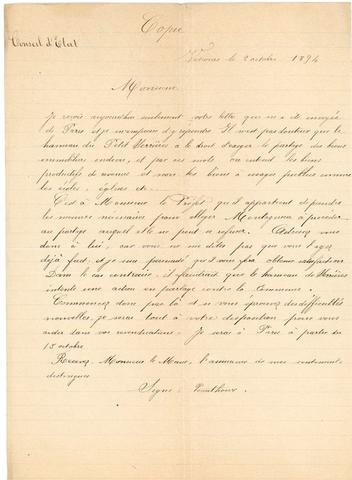 Copie
Conseil d'Etat
le 2 octobre 1894
Monsieur
Je reçois aujourd'hui seulement votre lettre qui m'a été envoyée
de Paris et je m'empresse d'y répondre. Il n'est pas douteux que le
hameau du Petit Verrières a le droit d'exiger le partage des biens
immobiliers indivis, et par ces mots on entend les biens
productifs de revenus et non les biens à usages publics comme
les écoles, églises etc
C'est à Monsieur le Préfet qu'il appartient de prendre
les mesures nécessaires pour obliger à procéder
au partage auquel elle ne peut se refuser. Adressez vous
donc à lui, car vous ne me dites pas que vous l'ayez
déjà fait, et je suis persuadé qu'il vous fera obtenir satisfaction
Dans le cas contraire, il faudrait que le hameau de Verrières
intente une action en partage contre la Commune.
Commencez donc par là et si vous éprouvez des difficultés
nouvelles, je serai tout à votre disposition pour vous
aider dans vos revendications. Je serai à Paris à partir du
15 octobre
Recevez, Monsieur le Maire, l'assurance de mes sentiments
distingués
Signé: